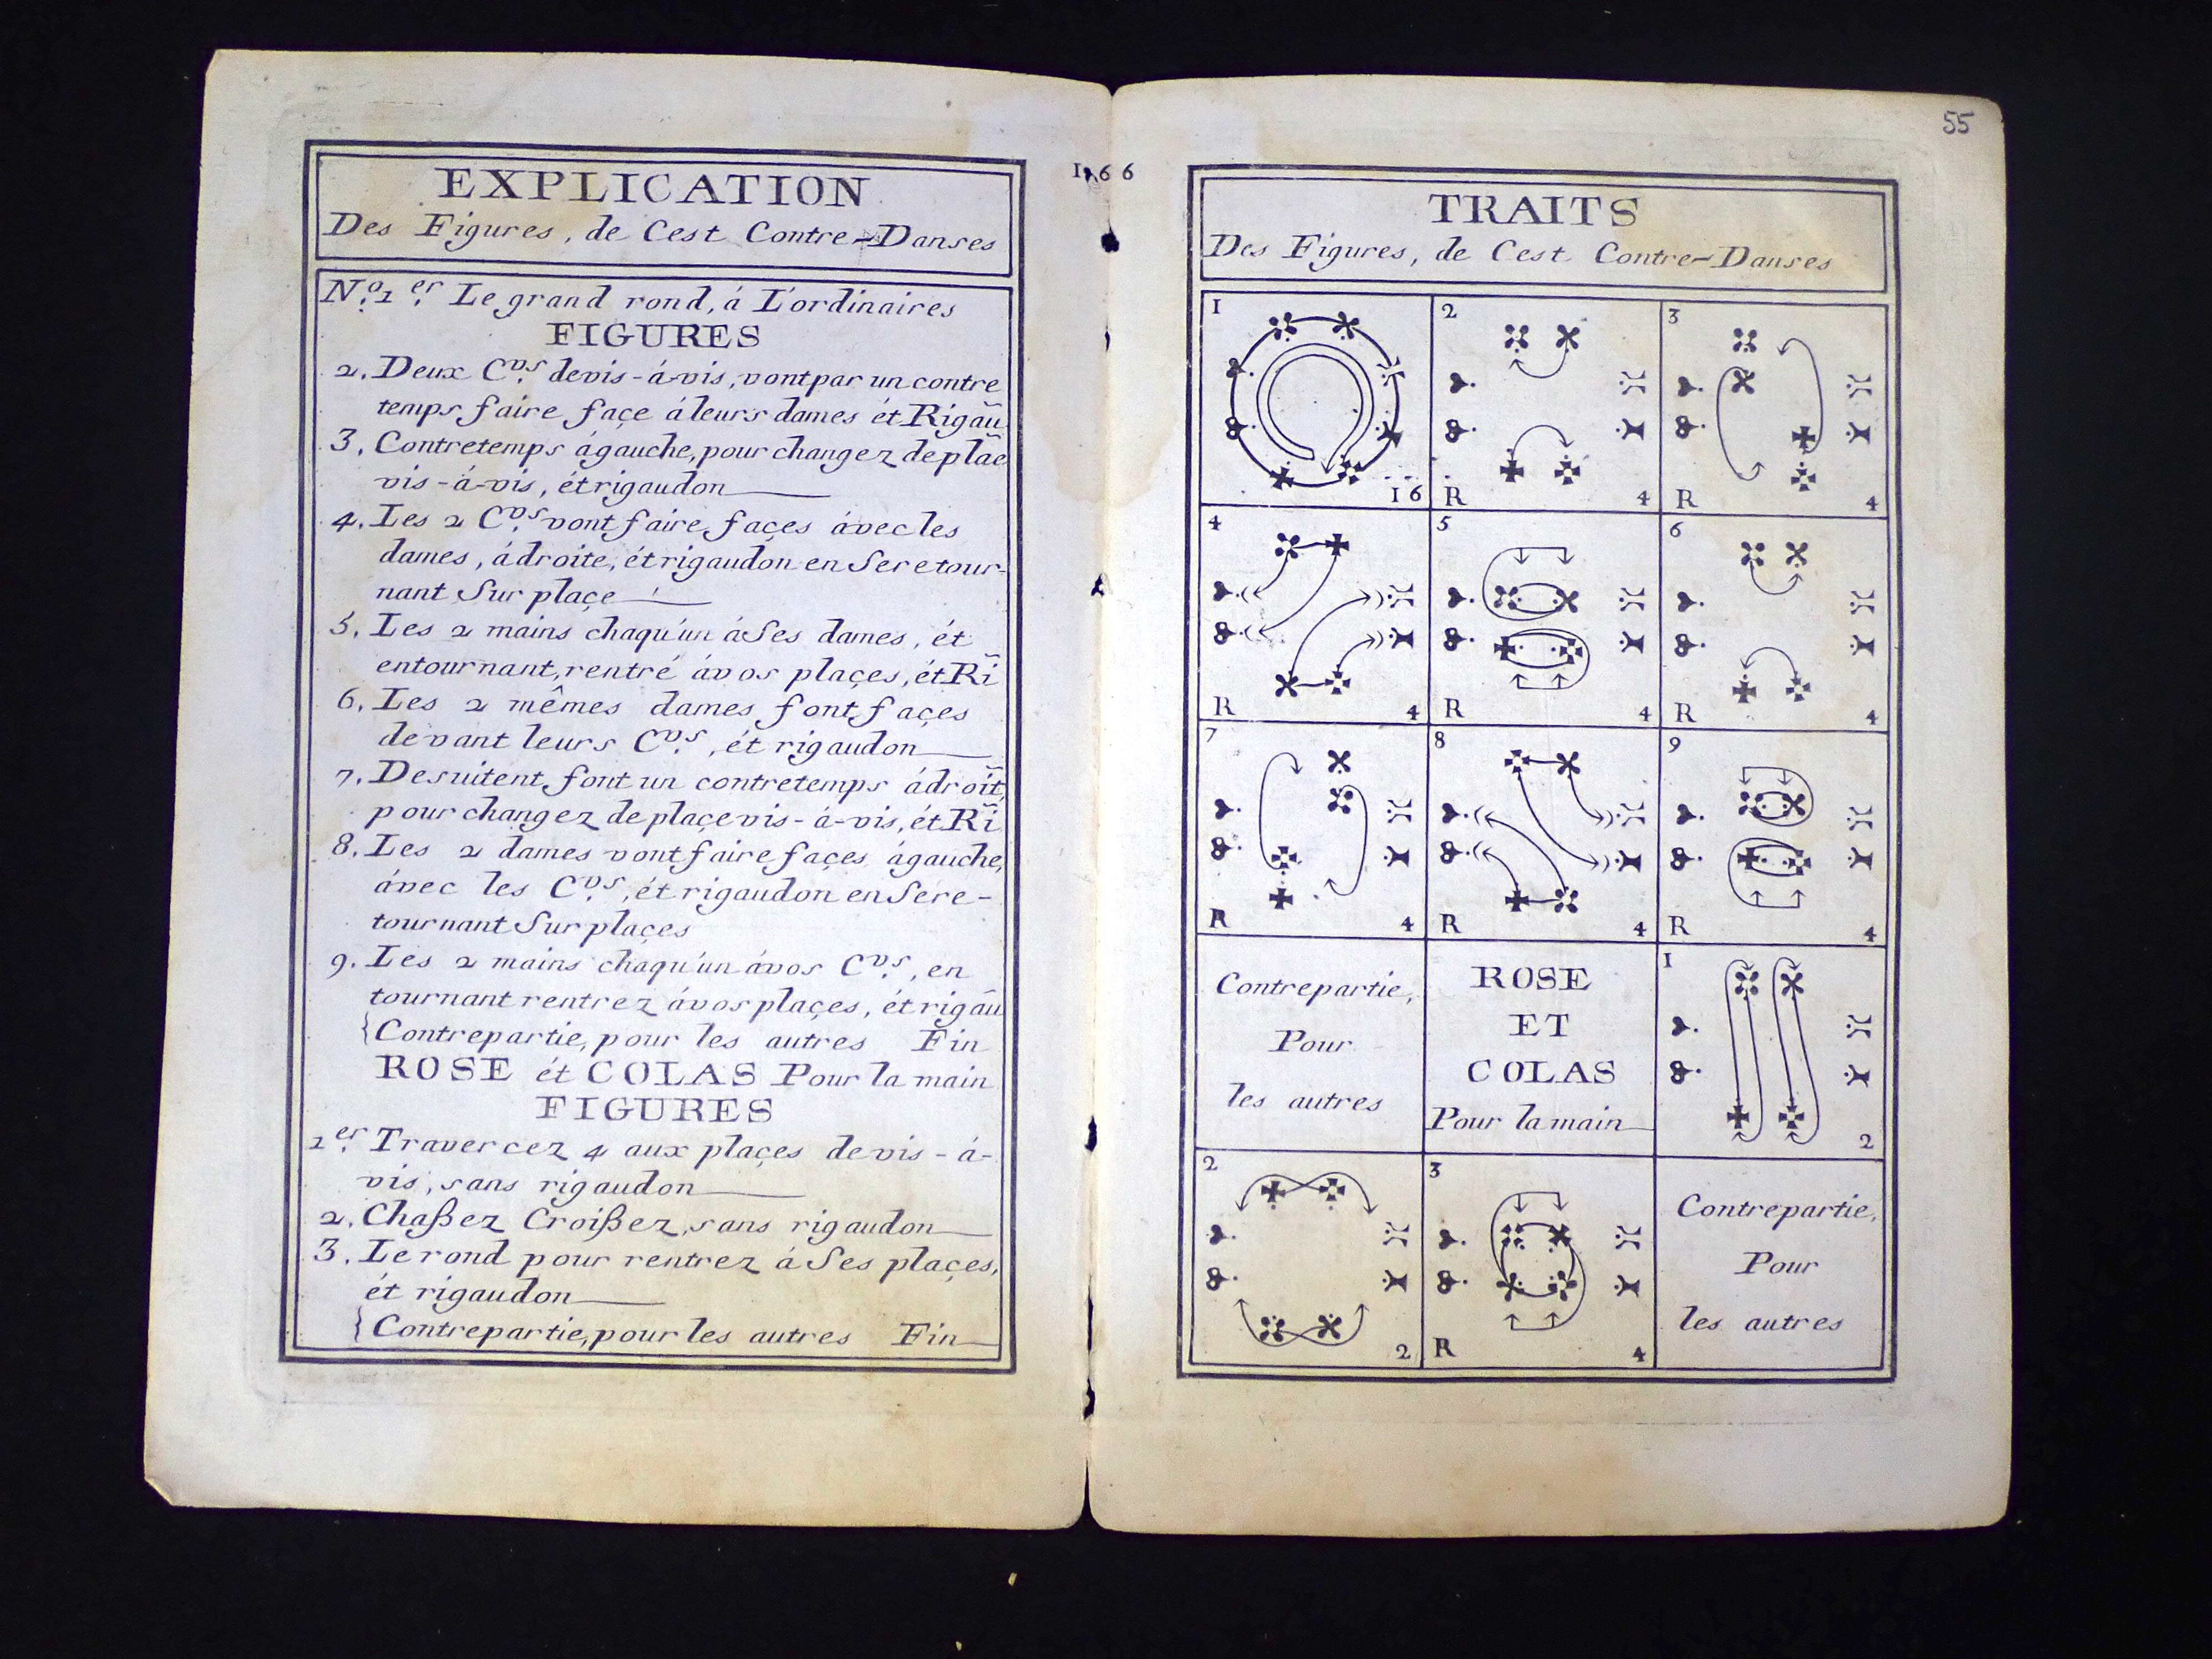 EXPLICATION
Des Figures, de Cest Contre-Danses
N.º 1.er Le grand rond, á L'ordinaires
FIGURES
2. Deux C.vs devis-á-vis, vont par un contre
temps faire façe á leurs dames ét Rigau̅
3. Contretemps ágauche, pour changez de pla̅e
vis-á-vis, ét rigaudon
4. Les 2 C.vs vont faire façes ávec les
dames, ádroite, ét rigaudon en Seretour-
nant Sur plaçe
5. Les 2 mains chaqu'un áSes dames, ét
entournant, rentré ávos plaçes, ét Ri̅
6. Les 2 mêmes dames font façes
devant leurs C.vs, ét rigaudon
7. Desuitent font un contretemps ádroit̅,
pour changez de plaçe vis-á-vis, ét Ri̅
8. Les 2 dames vont faire façes ágauche,
ávec les C.vs, ét rigaudon en Sere-
tournant Sur plaçes
9. Les 2 mains chaqu'un ávos C.vs, en
tournant rentrez ávos plaçes, ét rigau̅
{Contrepartie, pour les autres Fin
ROSE ét COLAS Pour la main
FIGURES
1.er Travercez 4 aux plaçes devis-á-
vis, sans rigaudon
2. Chaßez Croißez, sans rigaudon
3. Le rond pour rentrez á Ses plaçes,
ét rigaudon
{Contrepartie, pour les autres Fin
166
55
TRAITS
Des Figures, de Cest Contre-Danses
1 2 3
16 R 4 R 4
4 5 6
R 4 R 4 R 4
7 8 9
R 4 R 4 R 4
Contrepartie,
Pour
les autres
ROSE
ET
COLAS
Pour la main
1
2
2 3
2 R 4
Contrepartie,
Pour
les autres